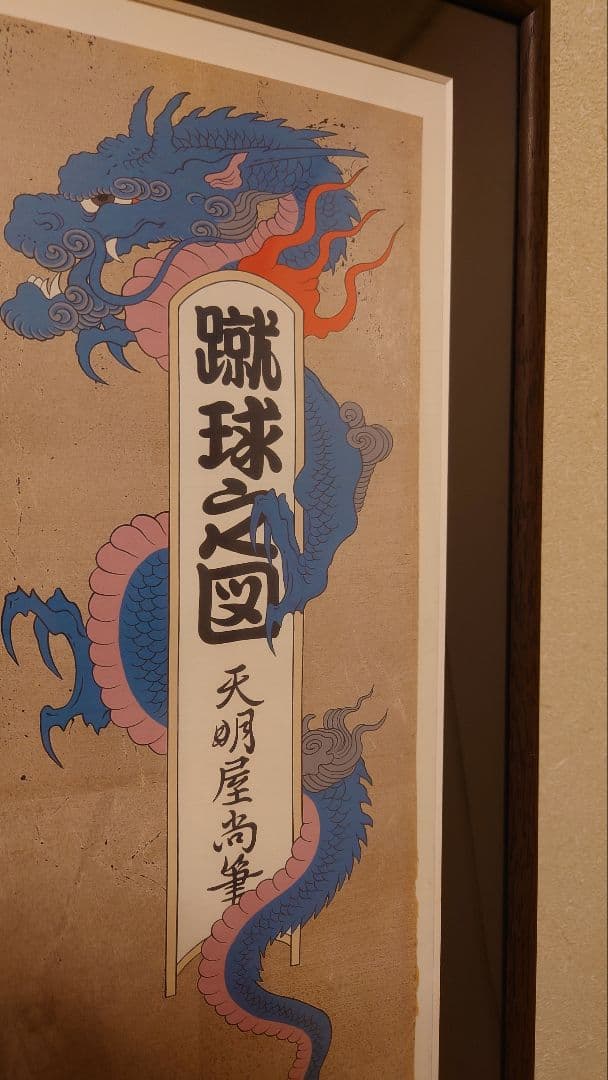 蹴球之図
天明屋尚筆